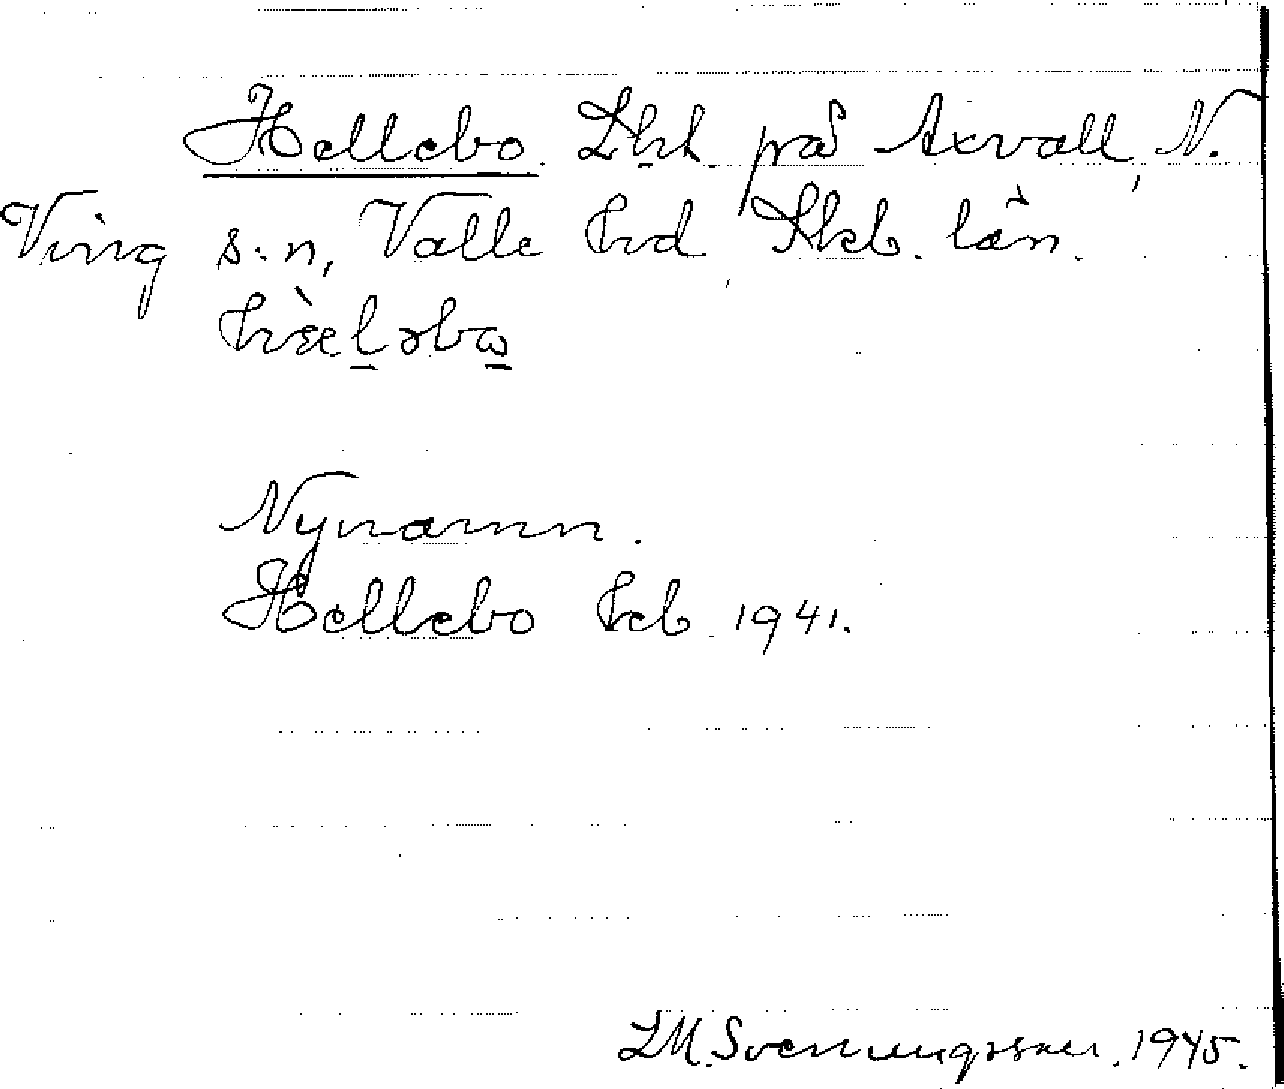 Hellebo. Lht. på Axvall, N.
Ving s:n, Valle hd, Skb. län.
hὲləbo
Nynamn.
Hellebo Feb 1941.
L.M. Svenungsson. 1945.